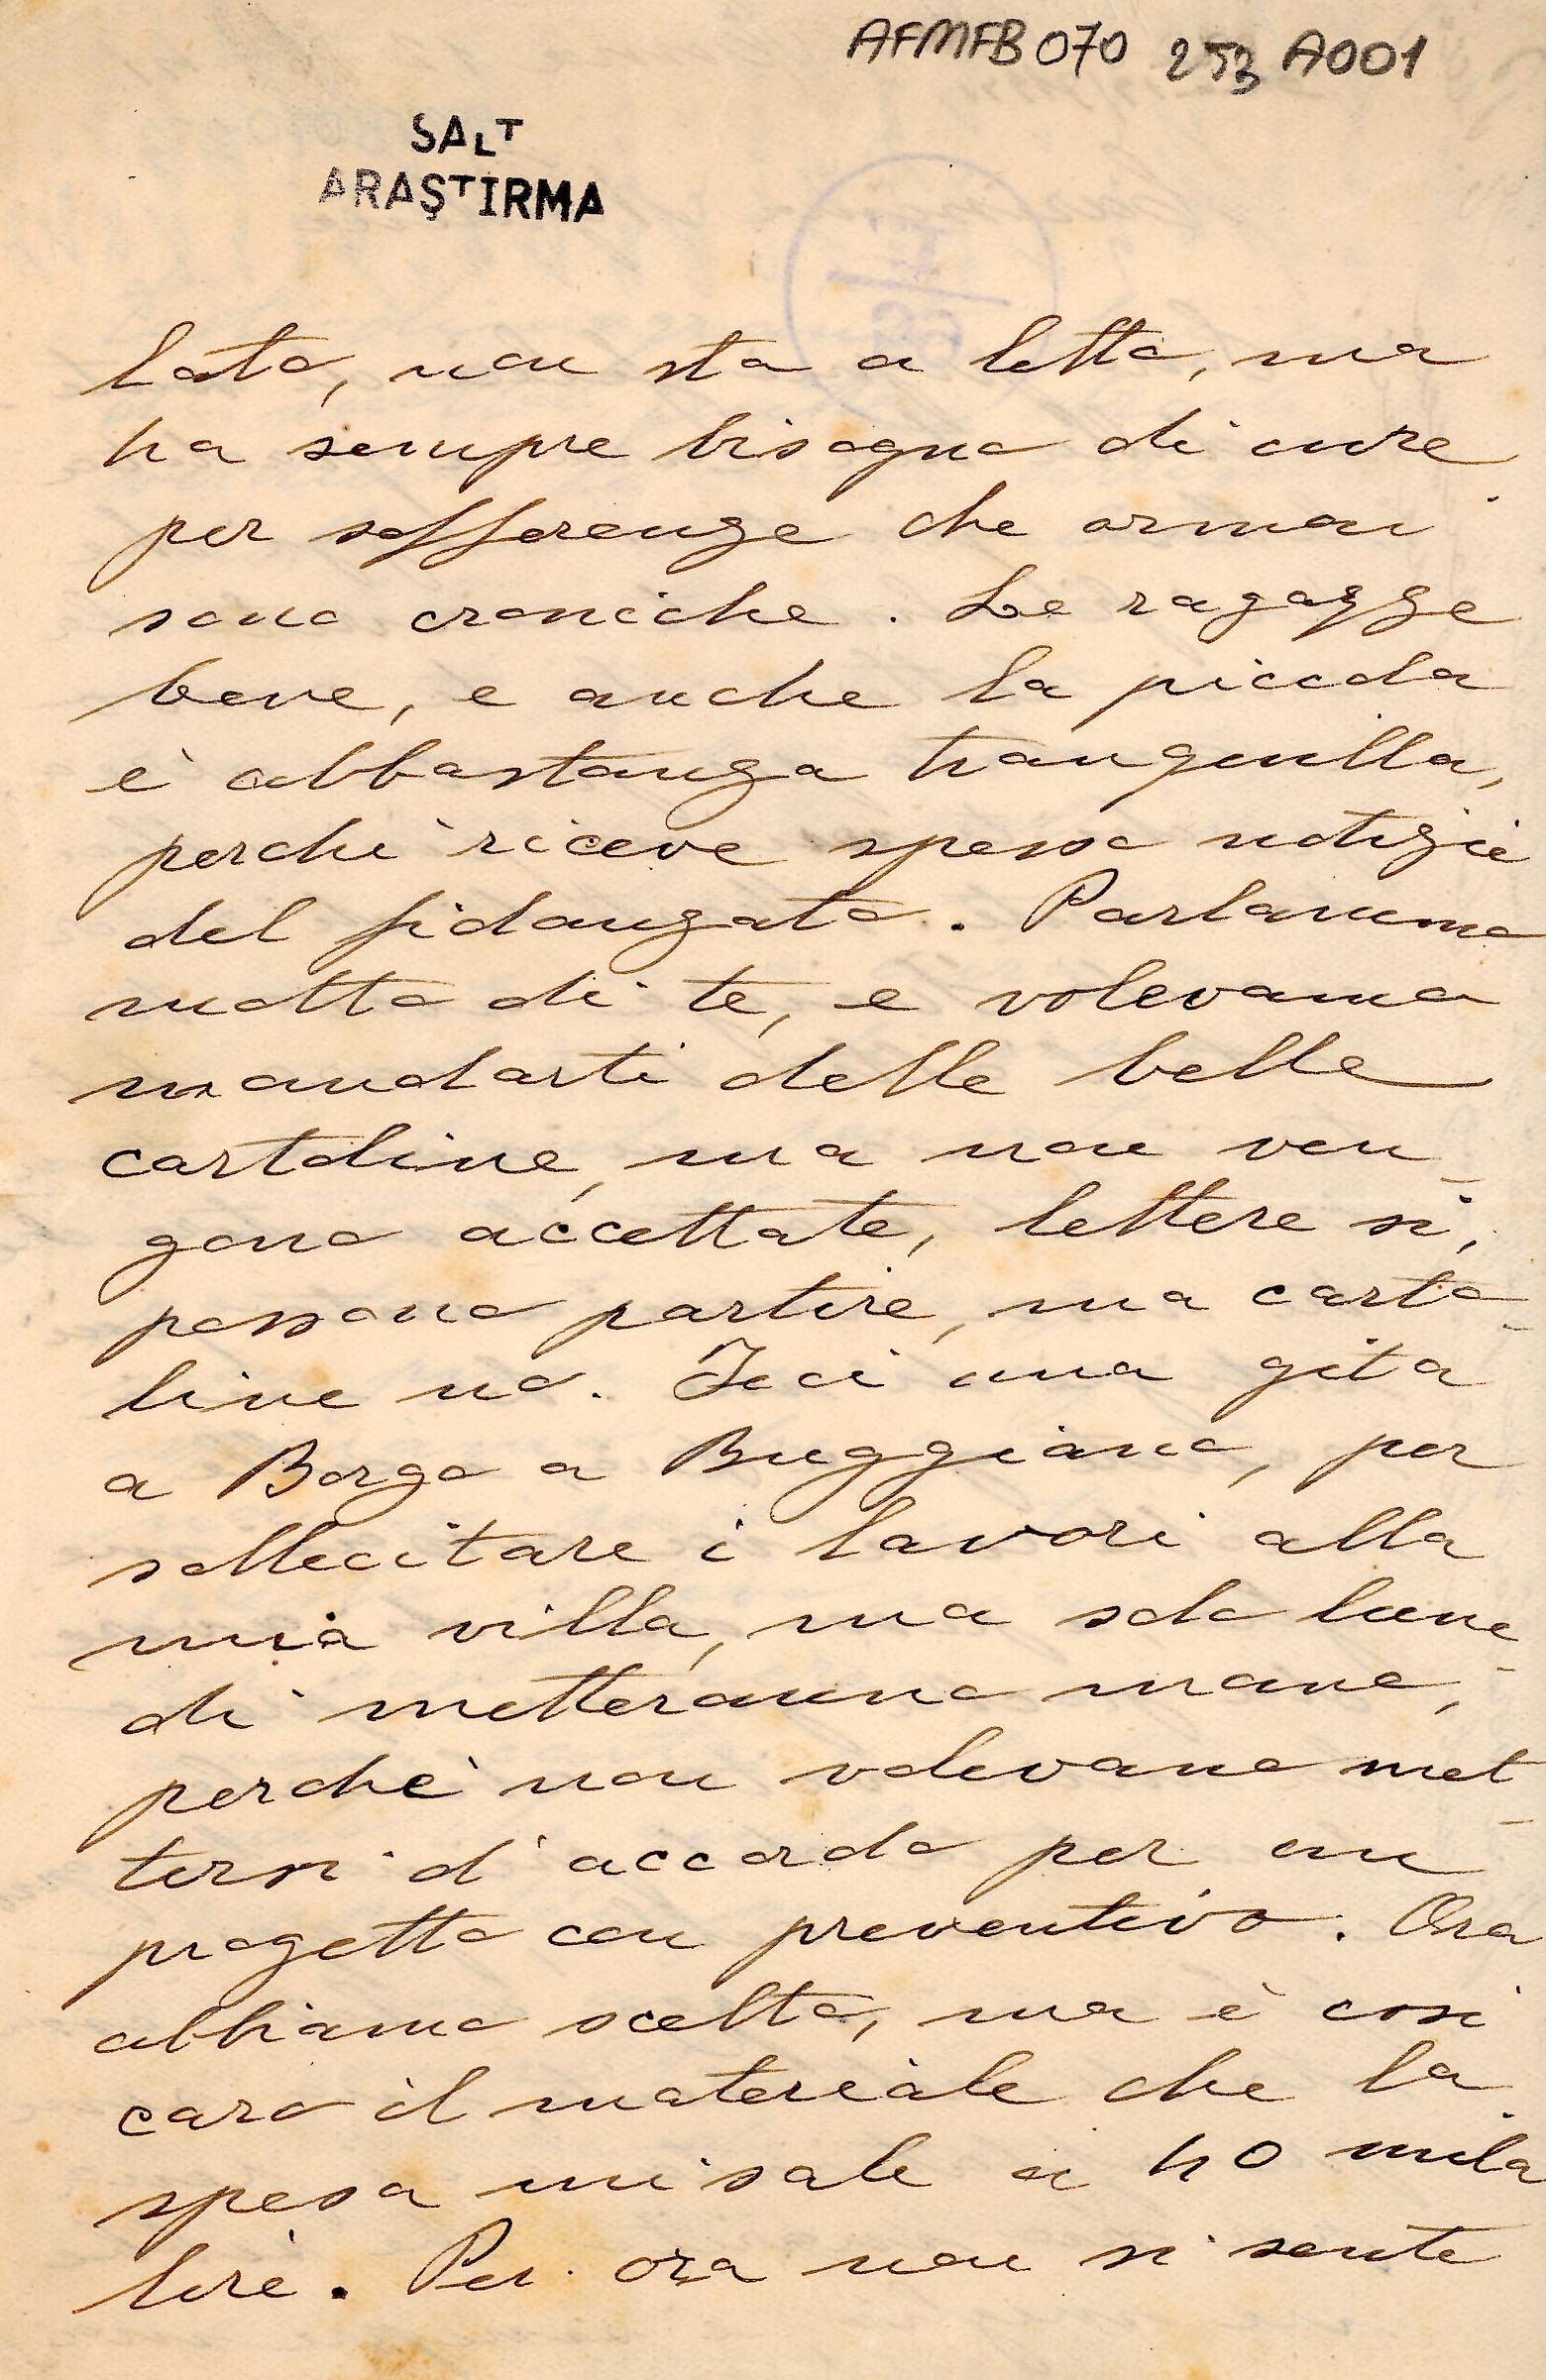 AFMFB070 253 A001
SALT
ARAŞTIRMA
lato, non sta a letto, ma
ha sempre bisogno di cure
per sofferenze che ormai
sono croniche. Le ragazze
bene, e anche la piccola
è abbastanza tranquilla,
perchè riceve spesso notizie
del fidanzato. Parlammo
molto di te, e volevamo
mandarti delle belle
cartoline, ma non ven-
gono accettate, lettere si,
possono partire, ma carto-
line no. Feci una gita
a Borgo a Buggiano, per
sollecitare i lavori alla
mia villa, ma solo lune-
di metteranno mano,
perchè non volevano met-
tersi d'accordo per un
progetto con preventivo. Ora
abbiamo scelto, ma è così
caro il materiale che la
spesa mi sale a 40 mila
lire. Per ora non si sente